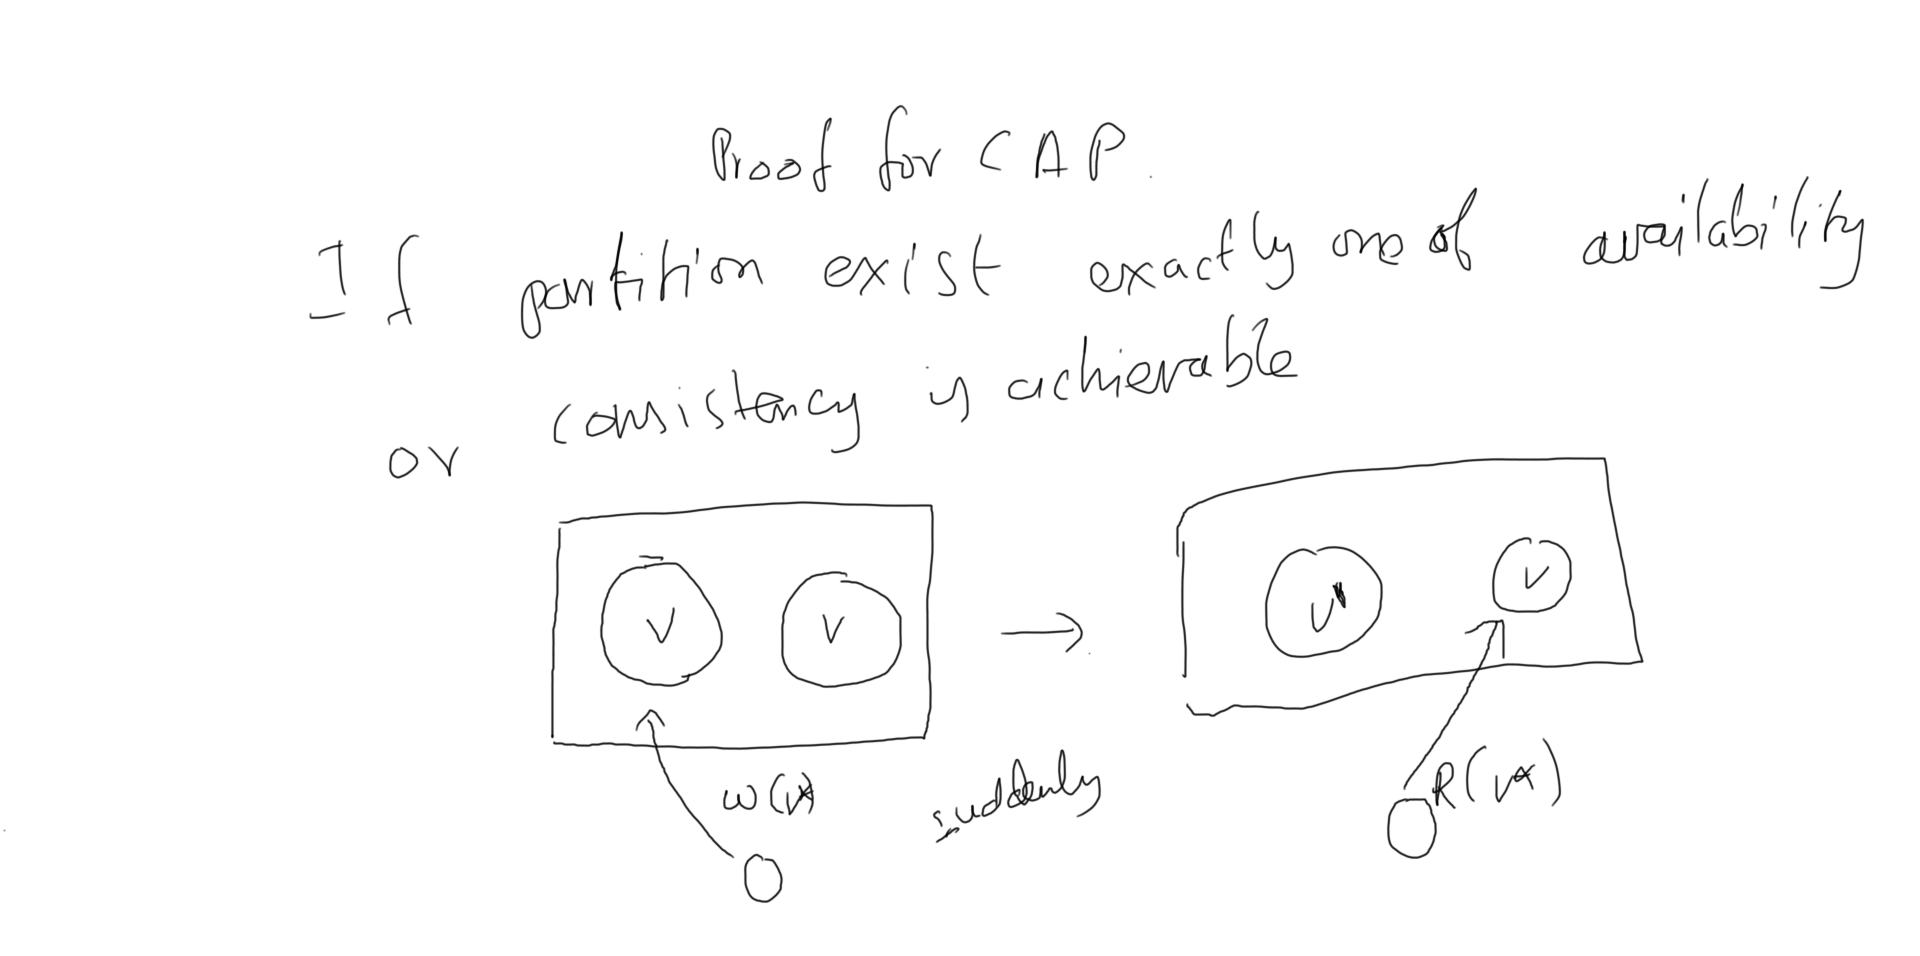 Proof for CAP.
If partition exist exactly one of availability
or consistency is achievable
V V
V* V
W(V*)
suddenly
R(V*)